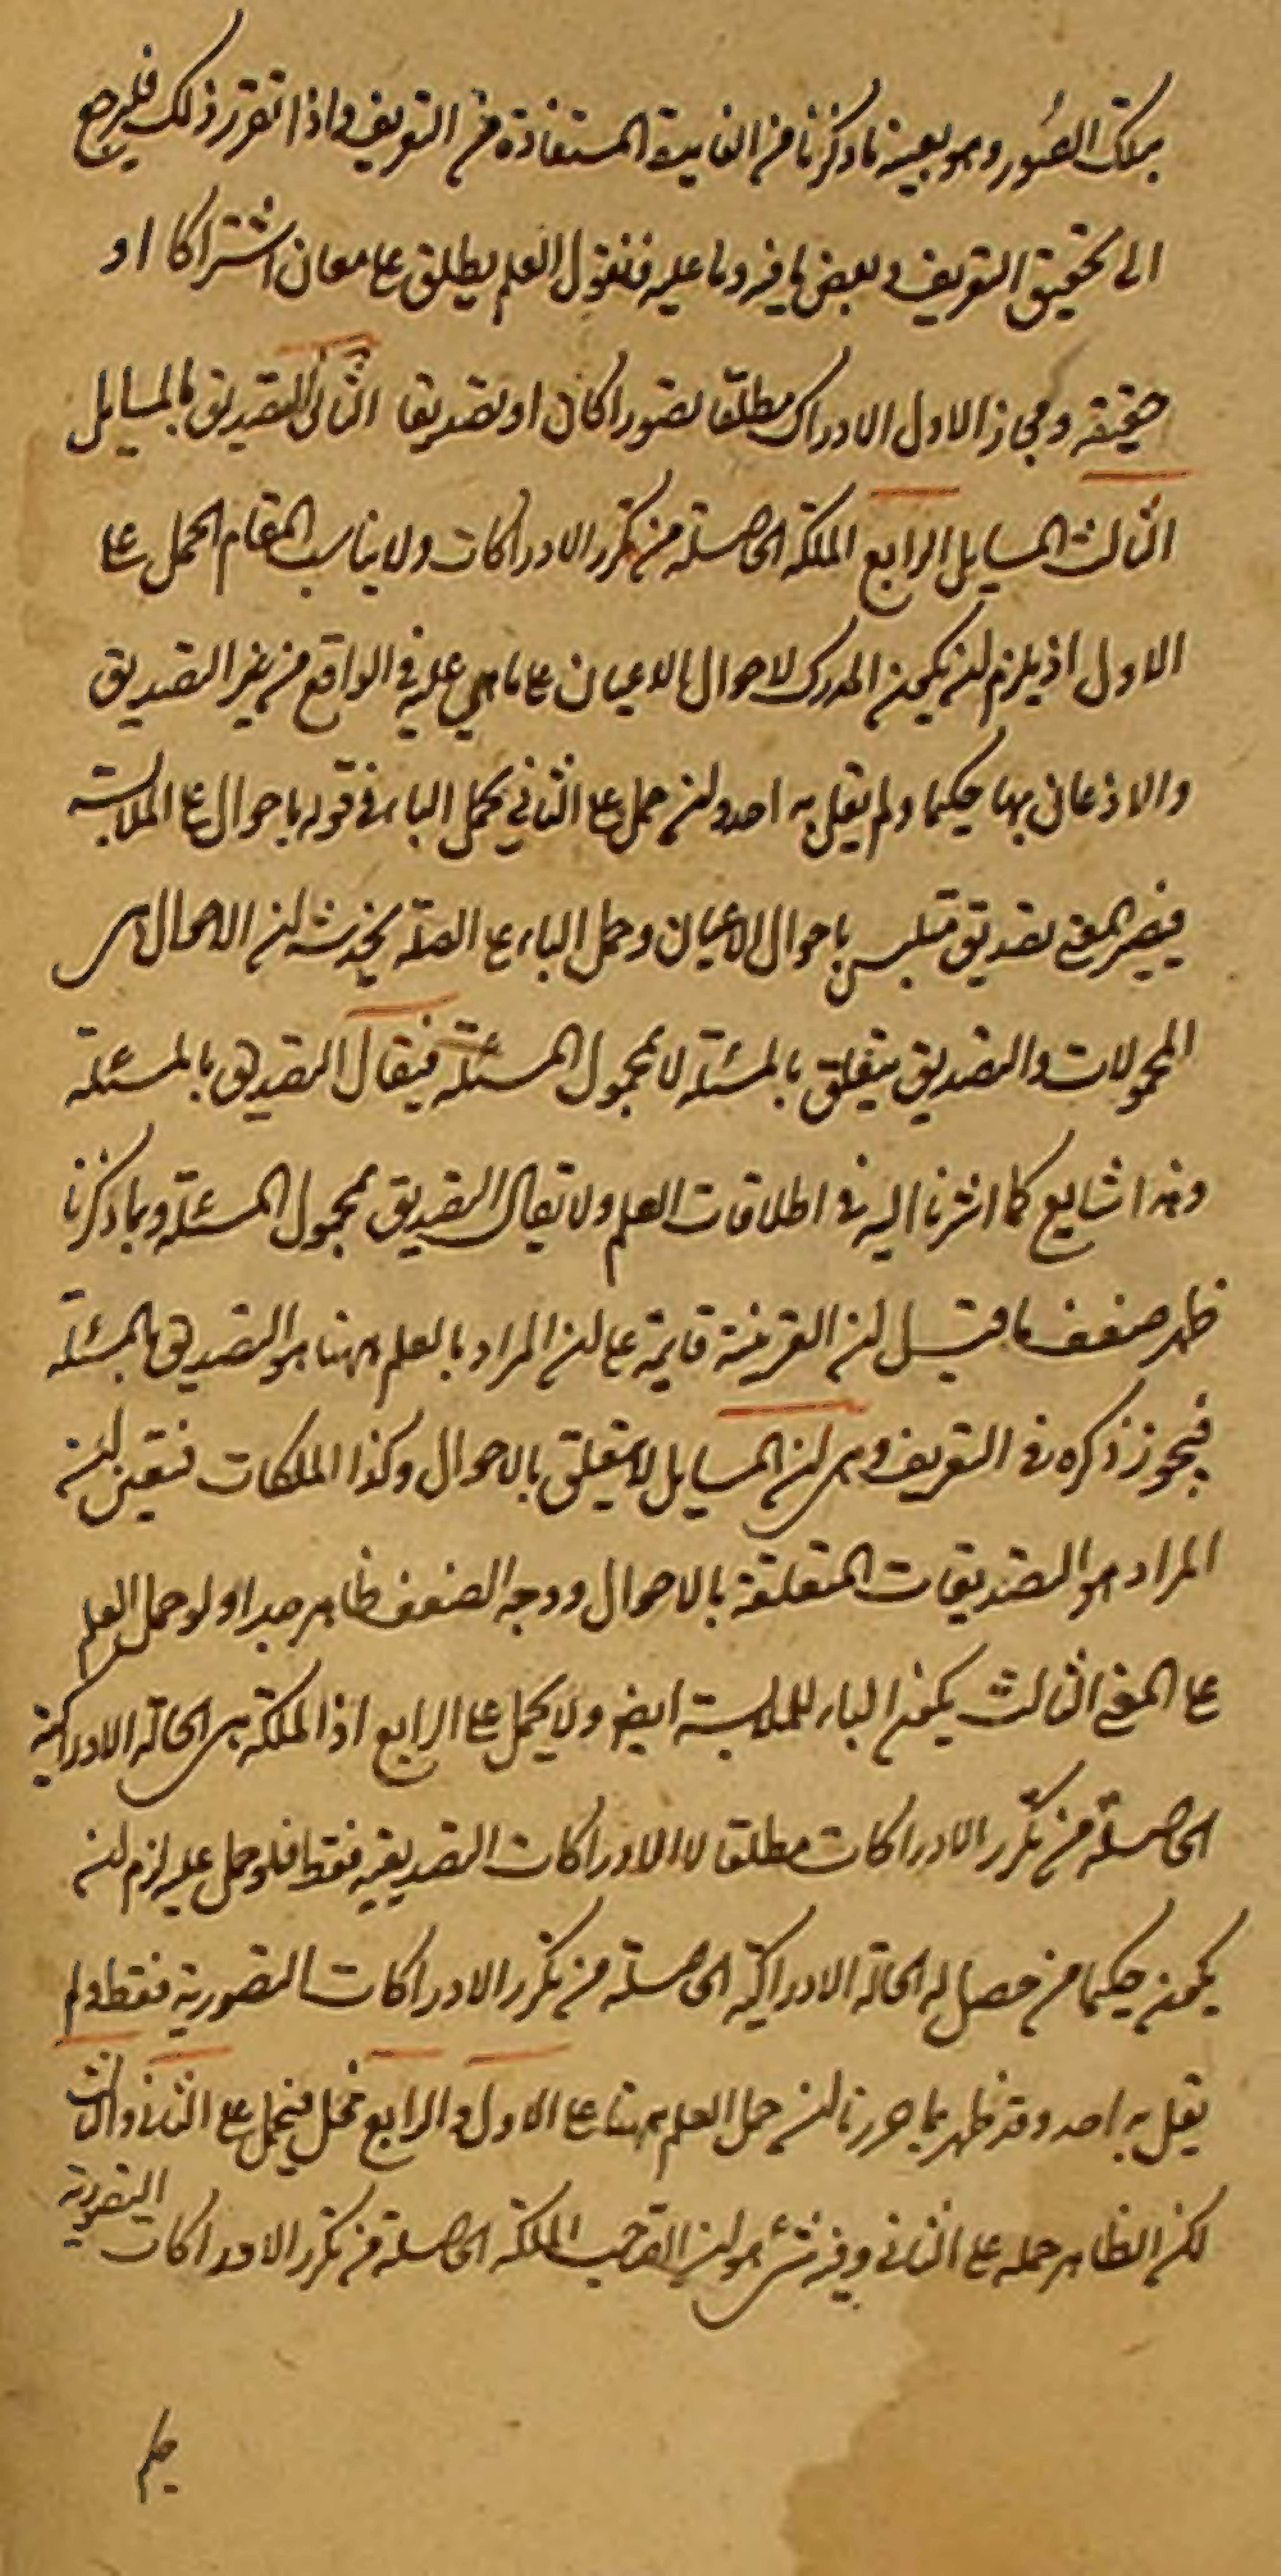 بتلك الصور وهو بعينه ما ذكرنا من الغاية المستفادة من التعريف واذا تقرر ذلك فليرجع
الى تحقيق التعريف وبعض ما فيه وما عليه فنقول العلم يطلق على معان اشتراكا او
حقيقة ومجازا الاول الادراك مطلقا تصورا كان او تصديقا الثاني التصديق بالمسايل
الثالث المسايل الرابع الملكة الحاصلة من تكرر الادراكات ولا يناسب المقام الحمل على
الاول اذ يلزم ان يكون المدرك لاحوال الاعيان على ما هي عليه في الواقع من غير التصديق
والاذعان بها حكيما ولم يقل به احد وان حمل على الثاني يحمل الباء في قوله باحوال على الملابسة
فيصير المعنى تصديق متلبس باحوال الاعيان وحمل الباء على الصلة يخدشه ان الاحوال هي
المحمولات والتصديق يتعلق بالمسئلة لا بمحمول المسئلة فيقال التصديق بالمسئلة
وهذا شايع كما اشرنا اليه في اطلاقات العلم ولا يقال التصديق بمحمول المسئلة وبما ذكرنا
ظهر ضعف ما قيل ان القرينة قايمة على ان المراد بالعلم ههنا هو التصديق بالمسئلة
فيجوز ذكره في التعريف وهي ان المسايل لا يتعلق بالاحوال وكذا الملكات فتعين ان
المراد هو التصديقات المتعلقة بالاحوال ووجه الضعف ظاهر جدا ولو حمل العلم
على المعنى الثالث يكون الباء للملابسة ايضا ولا يحمل على الرابع اذ الملكة هي الحالة الادراكية
الحاصلة من تكرر الادراكات مطلقا لا الادراكات التصديقيه فقط فلو حمل عليه لزم ان
يكون حكيما من حصل له الحالة الادراكية الحاصلة من تكرر الادراكات التصورية فقط ولم
يقل به احد وقد ظهر بما حررنا ان حمل العلم ههنا على الاول والرابع مخل فيحمل على الثاني والثالث
لكن الظاهر حمله على الثاني وفيه شئ هو ان القوم صاحب الملكة الحاصلة من تكرر الادراكات التصورية
حكيم